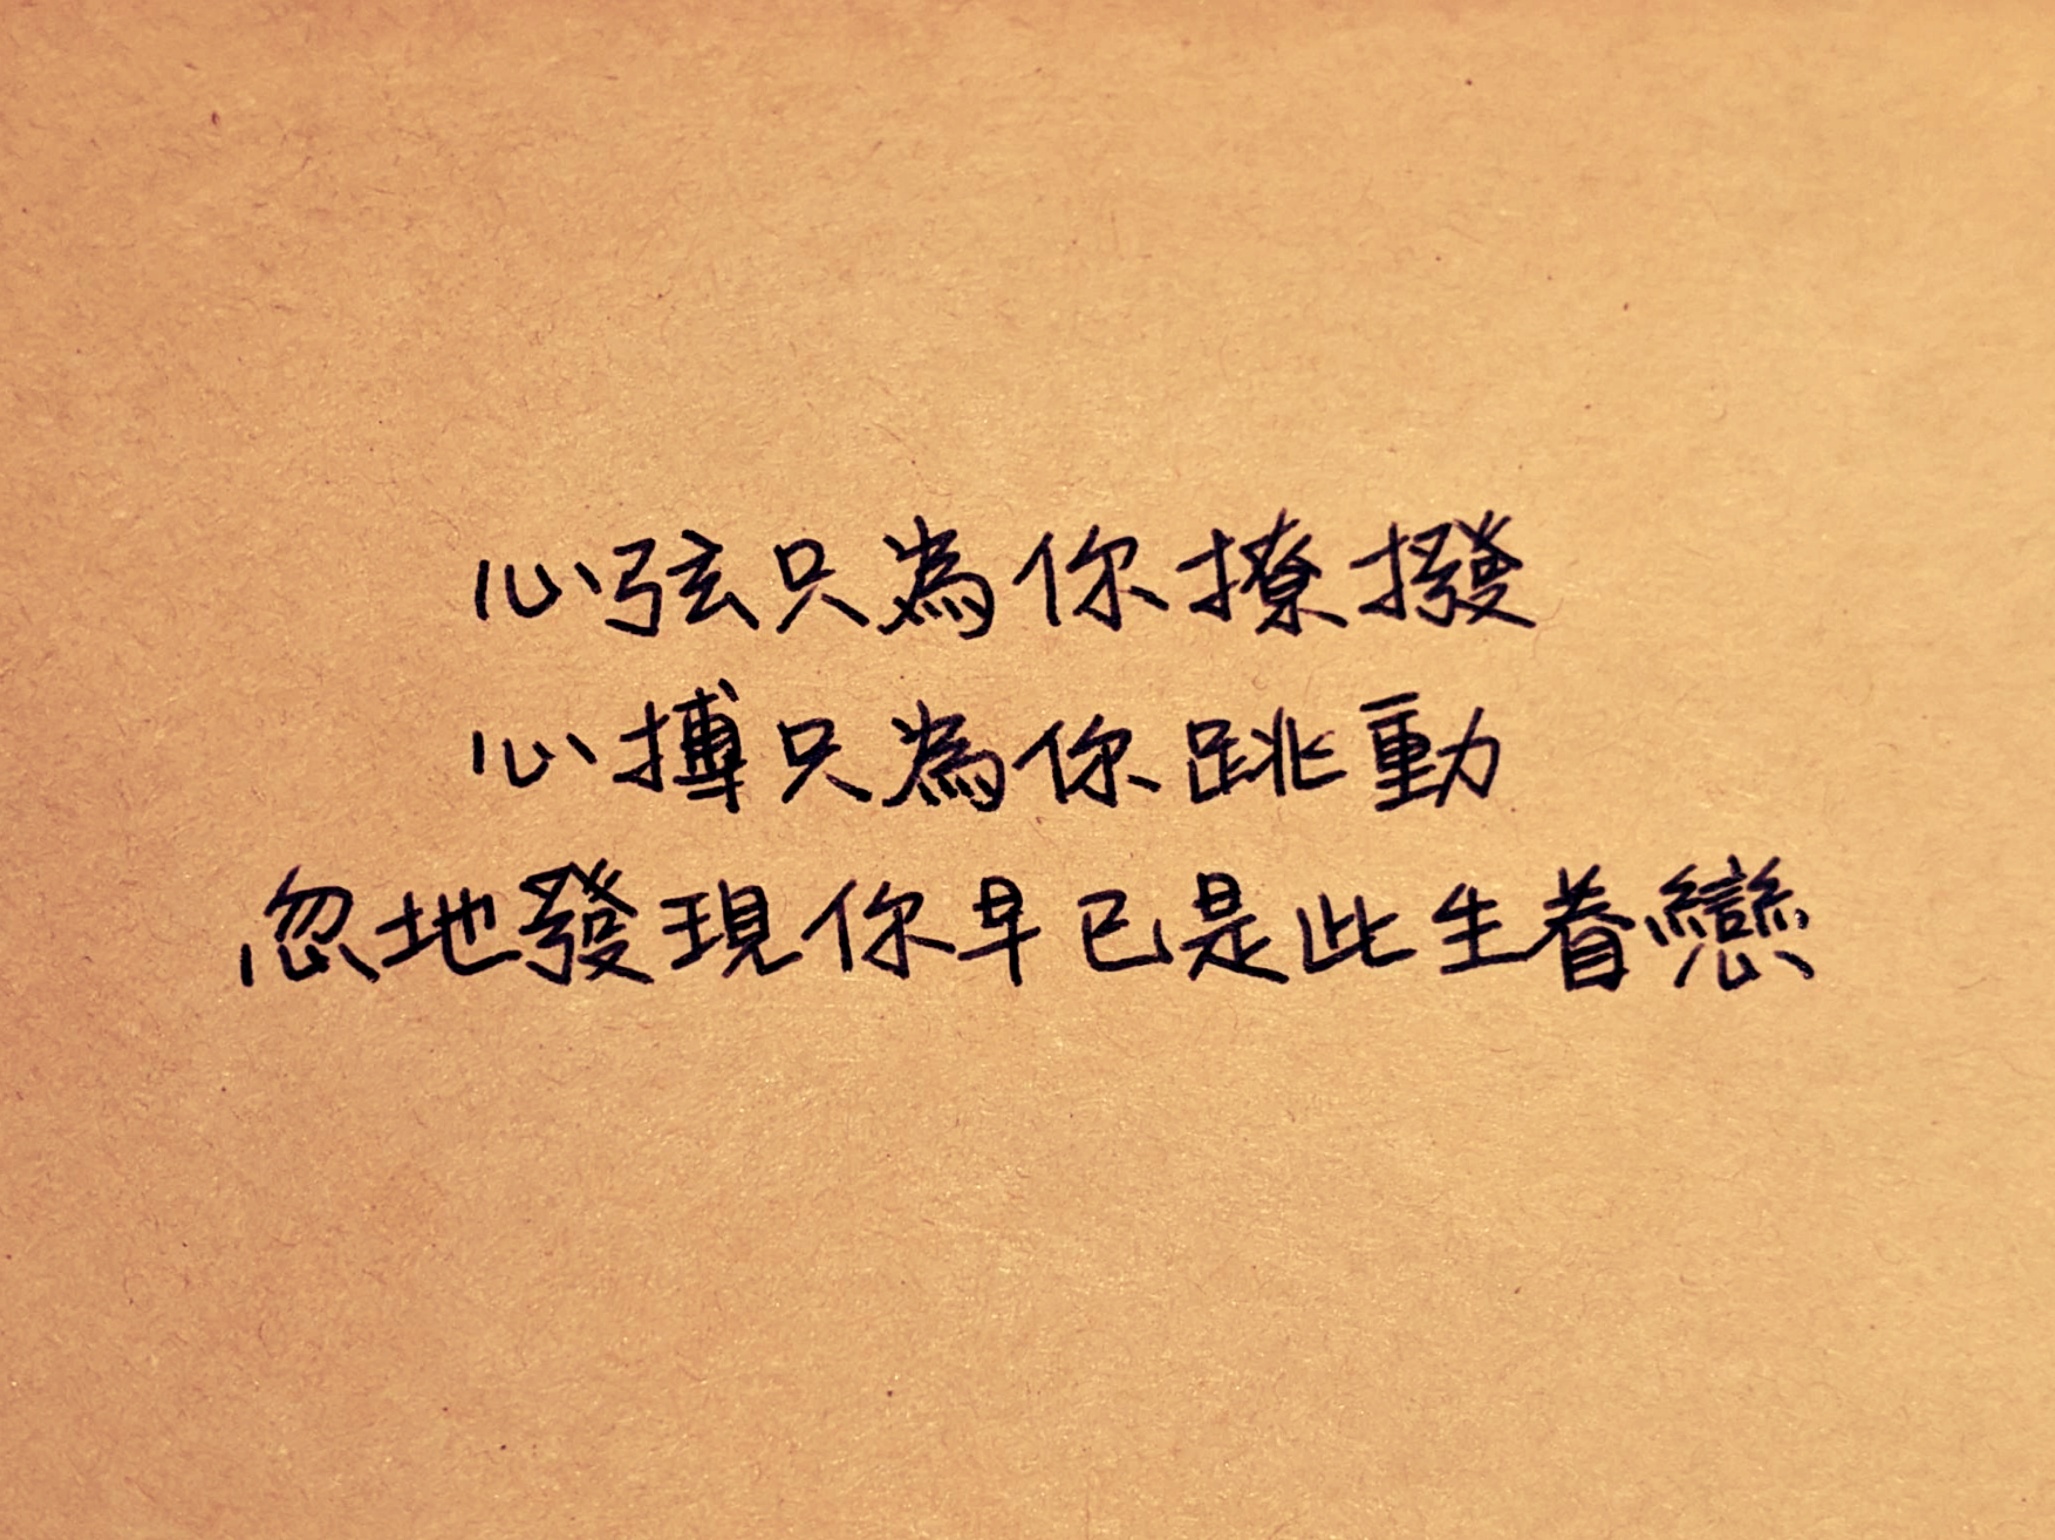 心弦只為你撩撥
心搏只為你跳動
忽地發現你早已是此生眷戀